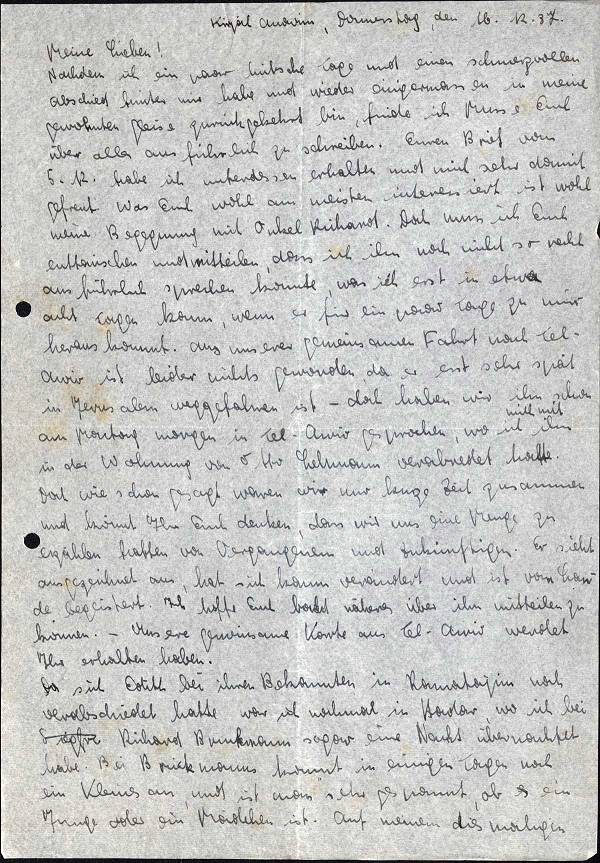 Kirjat Anavim, Donnerstag, den 16. 12. 37.
Meine Lieben!
Nachdem ich ein paar hitzige Tage und einen schmerzvollen
Abschied hinter mir habe und wieder einigermassen in meine
gewohnten Gleise zurückgekehrt bin, finde ich Musse Euch
über alles ausführlich zu schreiben. Euren Brief vom
5. 12. habe ich unterdessen erhalten und mich sehr damit
gefreut. Was Euch wohl am meisten interessiert ist wohl
meine Begegnung mit Onkel Richard. Doch muss ich Euch
enttäuschen und mitteilen, dass ich ihn noch nicht so recht
ausführlich sprechen konnte, was ich erst in etwa
acht Tagen kann, wenn er für ein paar Tage zu mir
heraus kommt. Aus unserer gemeinsamen Fahrt nach Tel-
Aviv ist leider nichts geworden da er erst sehr spät
in Jerusalem weggefahren ist – doch haben wir ihn schon
am Montag morgen in Tel-Aviv gesprochen, wo ich mich mit ihm
in der Wohnung von Otto Lehmann verabredet hatte.
Dort wie schon gesagt waren wir nur kurze Zeit zusammen
und könnt Ihr Euch denken, dass wir uns eine Menge zu
erzählen hatten von Vergangenem und Zukünftigen. Er sieht
ausgezeichnet aus, hat sich kaum verändert und ist vom Lan-
de begeistert. Ich hoffe Euch bald näheres über ihn mitteilen zu
können. – Unsere gemeinsame Karte aus Tel-Aviv werdet
Ihr erhalten haben.
Da sich Edith bei ihren Bekannten in Ramatajim noch
verabschiedet hatte war ich nochmal in Hadar, wo ich bei
Richard Bruckmann sogar eine Nacht übernachtet
habe. Bei Bruckmanns kommt in einigen Tagen noch
ein Kleines an, und ist man sehr gespannt, ob es ein
Junge oder ein Mädchen ist. Auf meinem diesmaligen